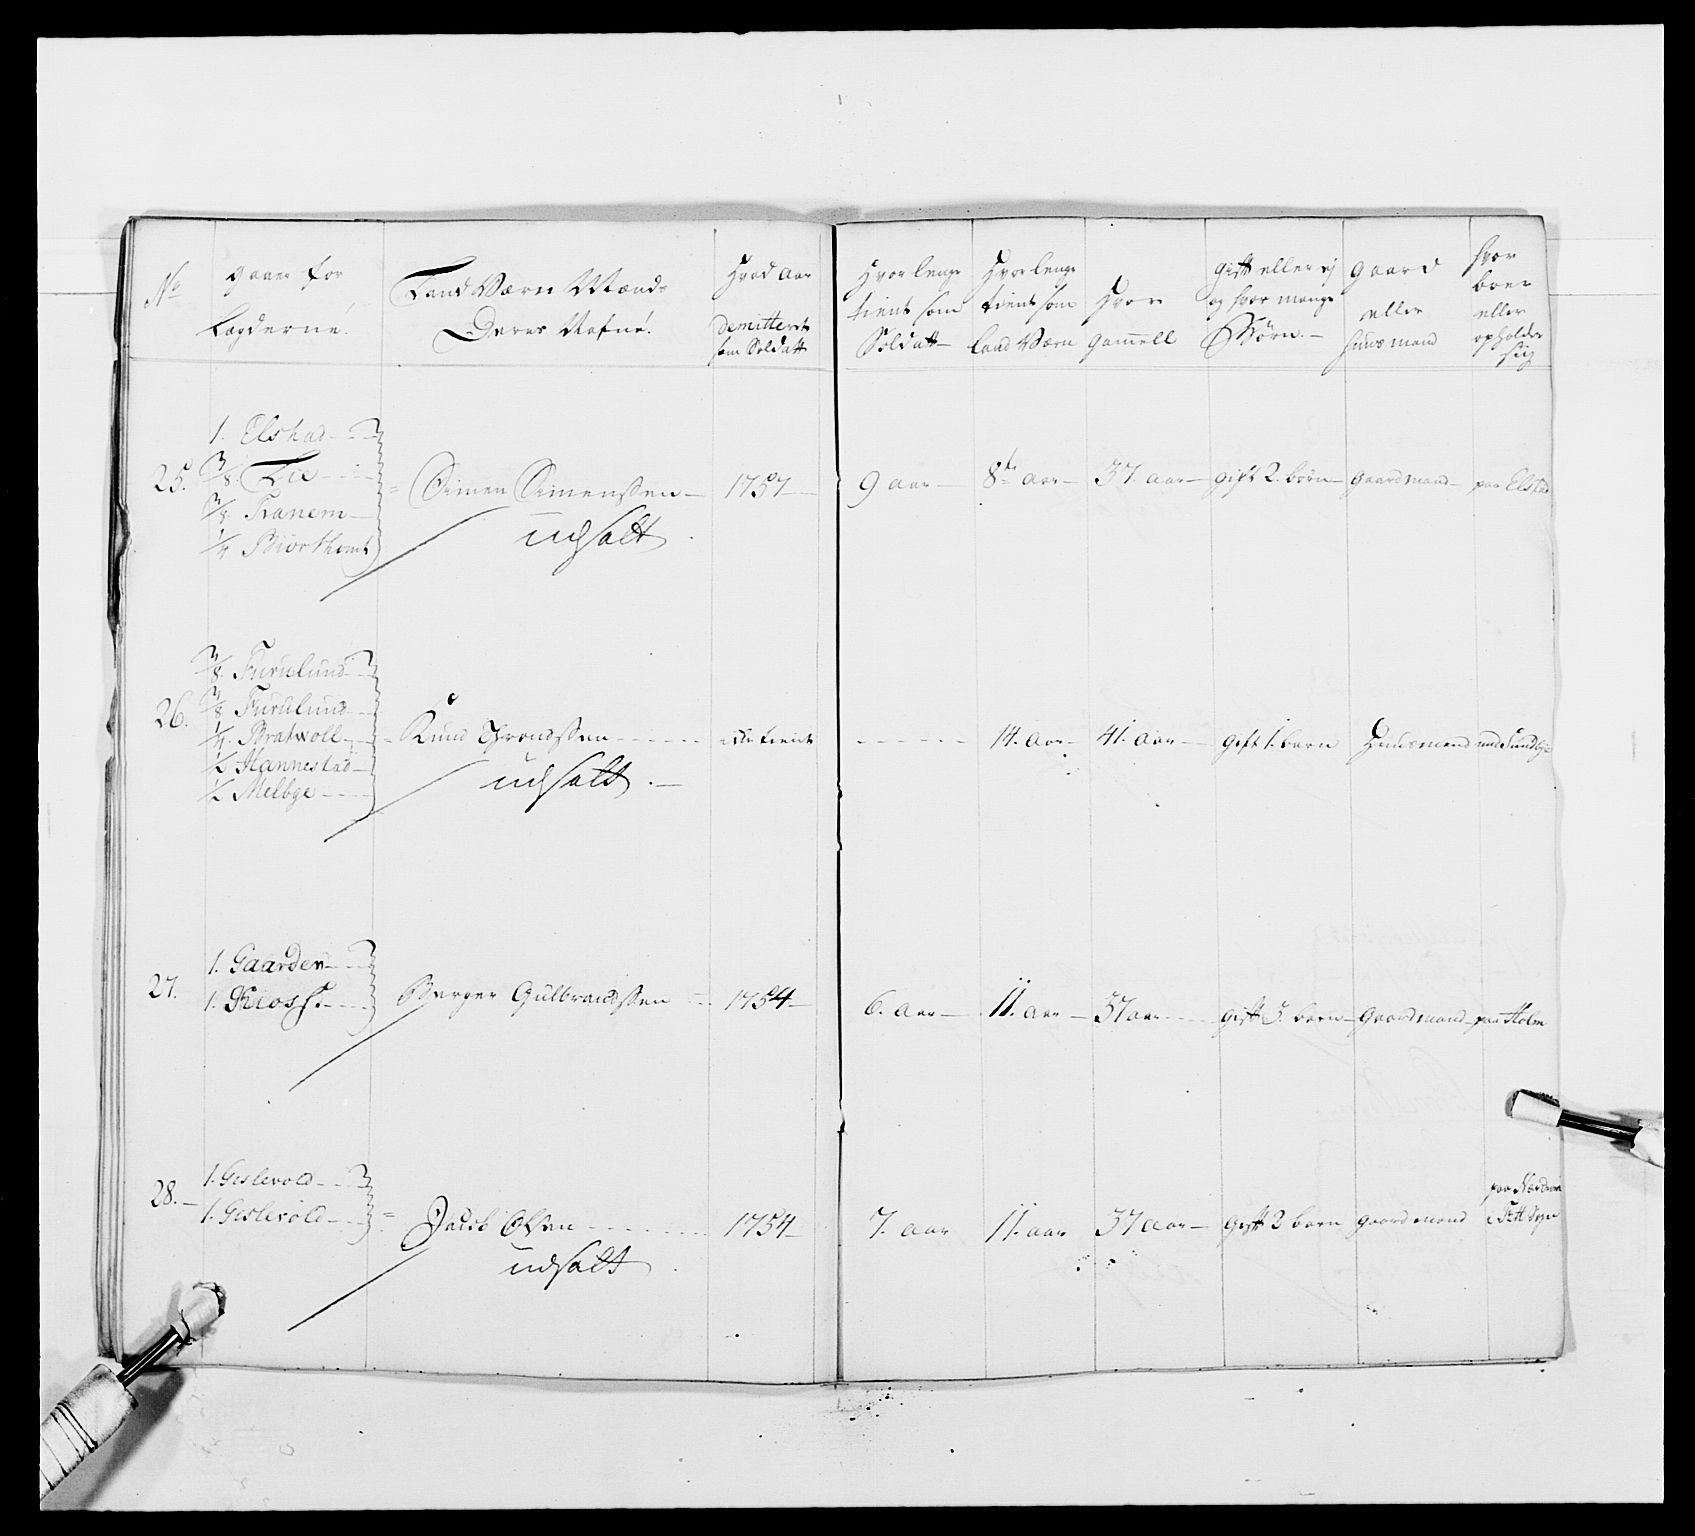 No
gaaer for
Lægderne.
Land Værn Mænds
Deres Nafne.
Hvad Aar
demitteret
som Soldatt
Hvorlenge
tient som
Soldatt
Hvorlenge
tient som
land Værn
Hvor
gamell
gift eller ej
og hvor mange
Børn.
gaard
eller
huusmand
hvor
boer
eller
opholder
sig
25.
1. Elstad
Lie
Tranem
1/4 Biørthomt
Simen Simenssen 1757 9 aar 8te aar 37. aar gift 2. børn gaardmand paa Elstad
udsatt
26.
Furulund
Furulund
1/4. Bratvoll
1/2 Hannestad
1/2 Melbye
Knud Throndssen icke tient 14. aar 41. aar gift 1. barn Huusmand
udsatt.
27.
1. Gaarder
1. Kioss.
Berger Gulbrandssen 1754 6. aar 11. aar 37 aar gift 3. børn gaardmand paa Holm
28.
1. Geslevold
1. Geslevold
Jacob Olsen 1754 7. aar 11. aar 37 aar gift 2 børn gaardmand
udsatt